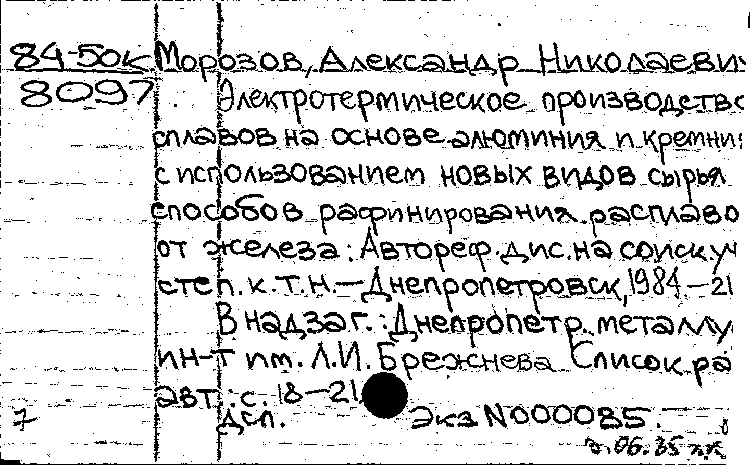 84-50к Морозов, Александр Николаеви
8097 Электротермическое производство
сплавов на основе алюминия и кремни
с использованием новых видов сырья
способов рафинирования расплаво
от железа: Автореф. дис. на соиск. уч
степ. к. т. н. — Днепропетровск, 1984. — 21
В надзаг.: Днепропетр. металлу
ин-т им. Л. И. Брежнева. Список ра
авт.: с. 18-21
7 Дсп. Экз N000085.